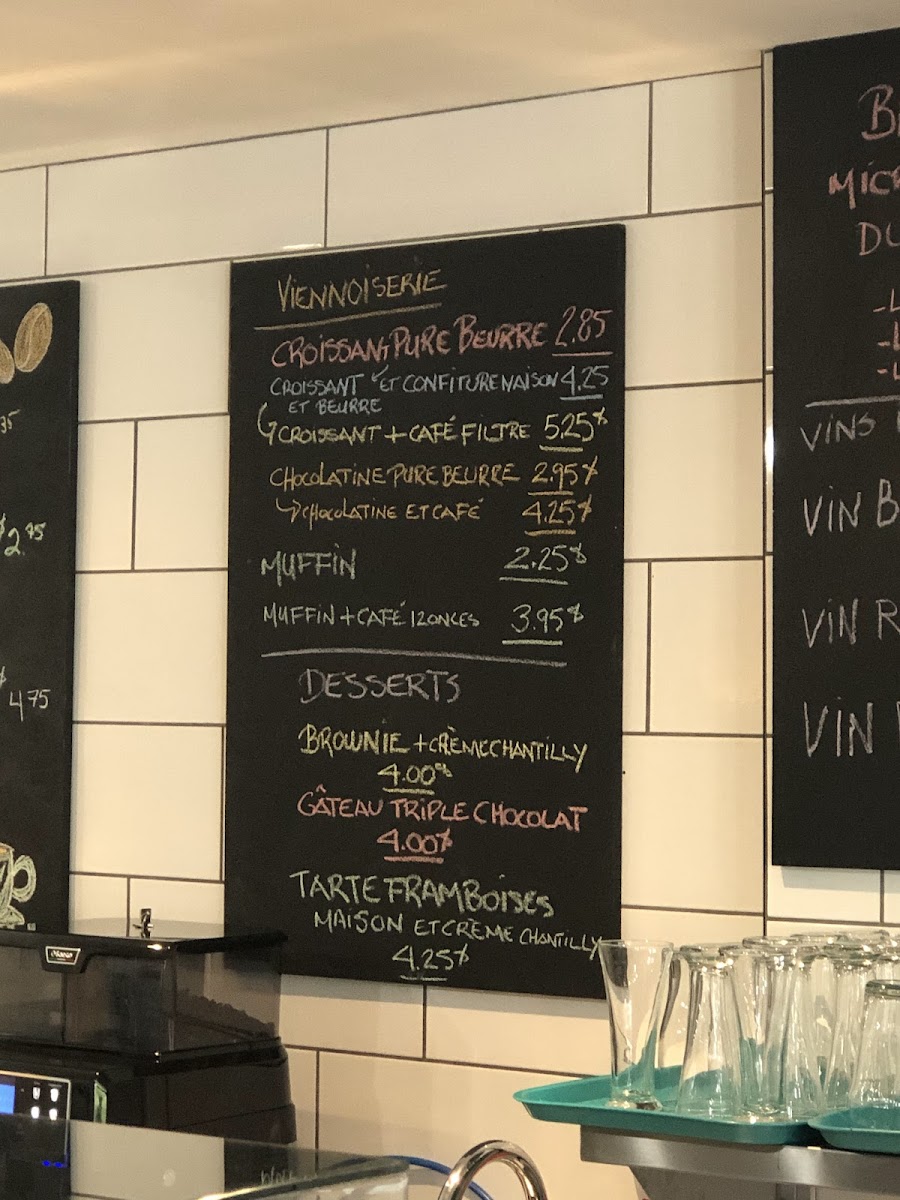 35
2.95
4.75
VIENNOISERIE
CROISSANT PURE BEURRE 2.85
CROISSANT ET CONFITURE MAISON 4.25
ET BEURRE
CROISSANT + CAFÉ FILTRE 5.25$
CHOCOLATINE PURE BEURRE 2.95$
CHOCOLATINE ET CAFÉ 4.25$
MUFFIN 2.25$
MUFFIN + CAFÉ 12 ONCES 3.95$
DESSERTS
BROWNIE + CRÈME CHANTILLY
4.00$
GÂTEAU TRIPLE CHOCOLAT
4.00$
TARTE FRAMBOISES
MAISON ET CRÈME CHANTILLY
4.25$
MICR
DU
-L
-L
-L
VINS
VIN B
VIN R
VIN